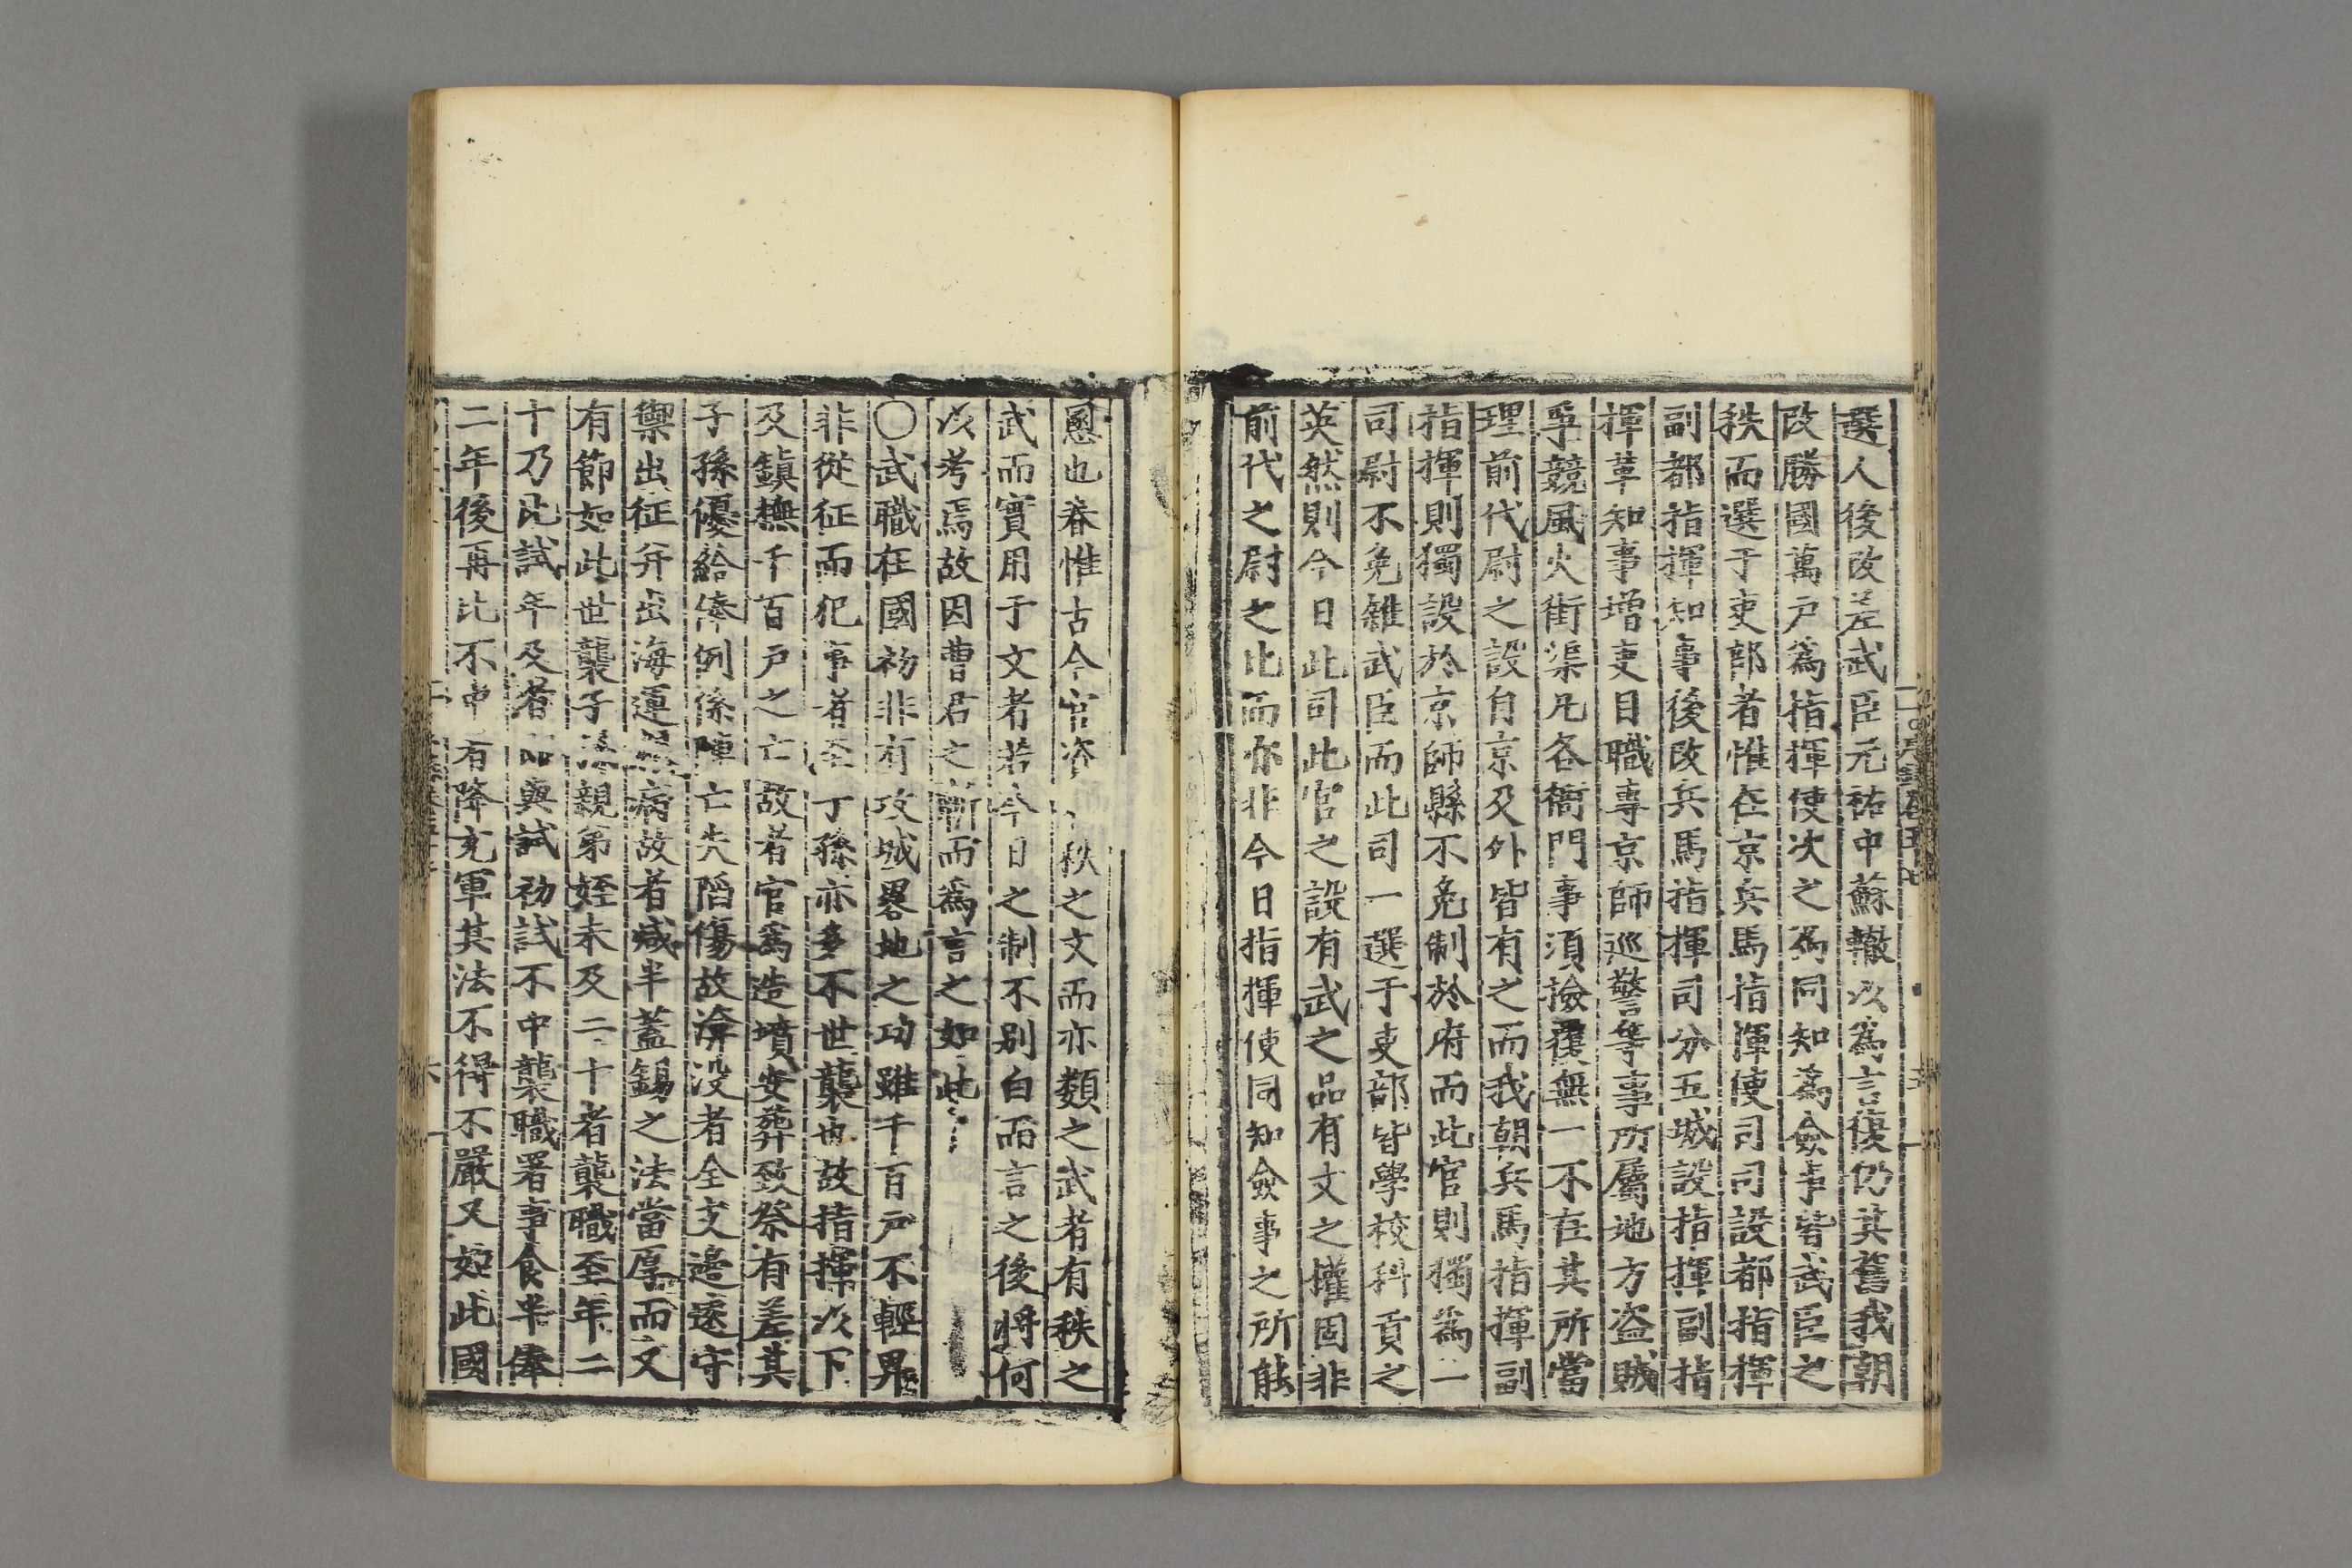 選人後改差武臣元祐中蘇轍以爲言復仍其舊我朝
改勝國萬户爲指揮使次之爲同知爲僉事皆武臣之
秩而選于吏部者惟在京兵馬指揮使司司設都指揮
副都指揮知事後改兵馬指揮司分五城設指揮副指
揮革知事增吏目職專京師巡警等事所屬地方盗賊
爭競風火街渠凡各衙門事須撿覆無一不在其所當
理前代尉之設自京及外皆有之而我朝兵馬指揮副
指揮則獨設於京師縣不免制於府而此官則獨爲一
司尉不免雜武臣而此司一選于吏部皆學校科貢之
英然則今日此司此官之設有武之品有文之權固非
前代之尉之比而亦非今日指揮使同知僉事之所能
慁也春惟古今官資秩之文而亦類之武者有秩之
武而實用于文者若今日之制不别白而言之後將何
以考焉故因曹君之新而爲言之如此
〇武職在國初非有攻城畧地之功雖千百戸不輕畀
非從征而犯事者至丁孫亦多不世襲也故指揮以下
及鎮撫千百户之亡故者官爲造墳安葬致祭有差其
子孫優給俸例係陣亡失陷傷故渰没者全支邉遠守
禦出征并出海運病故者减半蓋錫之法當厚而又
有節如此世襲子孫親弟姪未及二十者襲職至年二
十乃比試年及者即與試初試不中襲職署事食半俸
二年後再比不中有降充軍其法不得不嚴又如此國